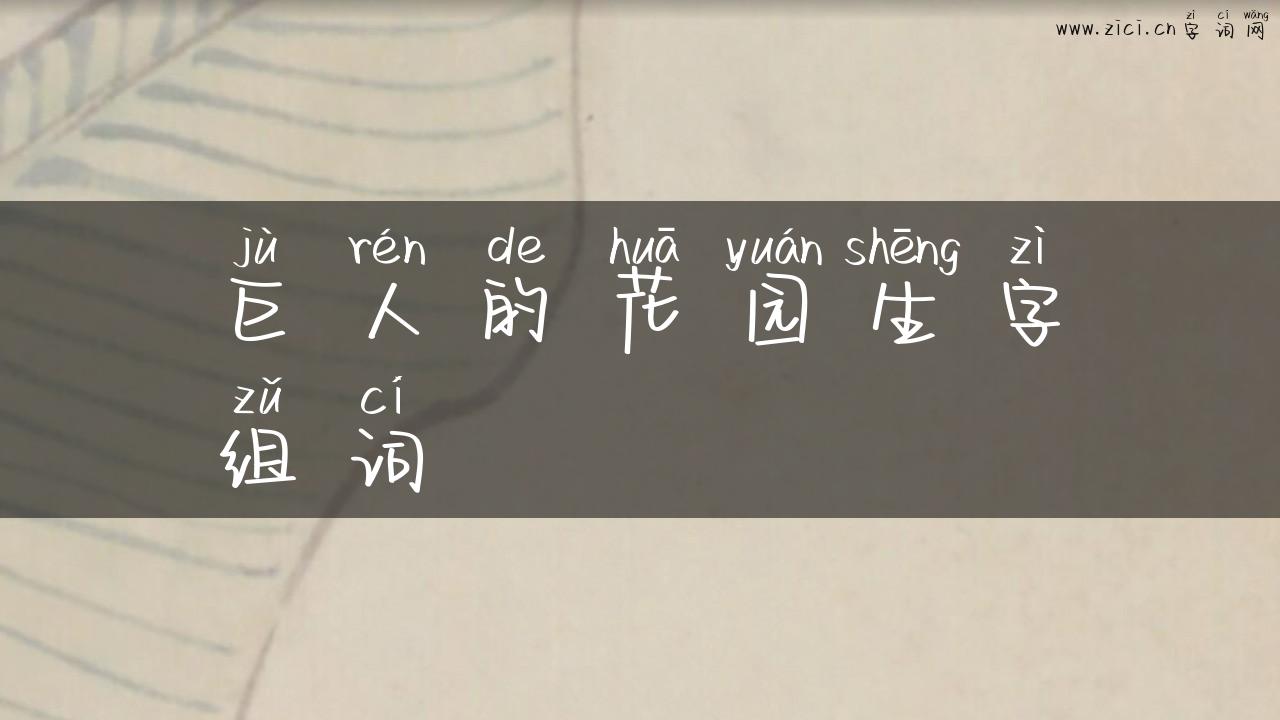 zì cí wǎng
www.zici.cn 字词网
jù rén de huā yuán shēng zì
巨人的花园生字
zǔ cí
组词